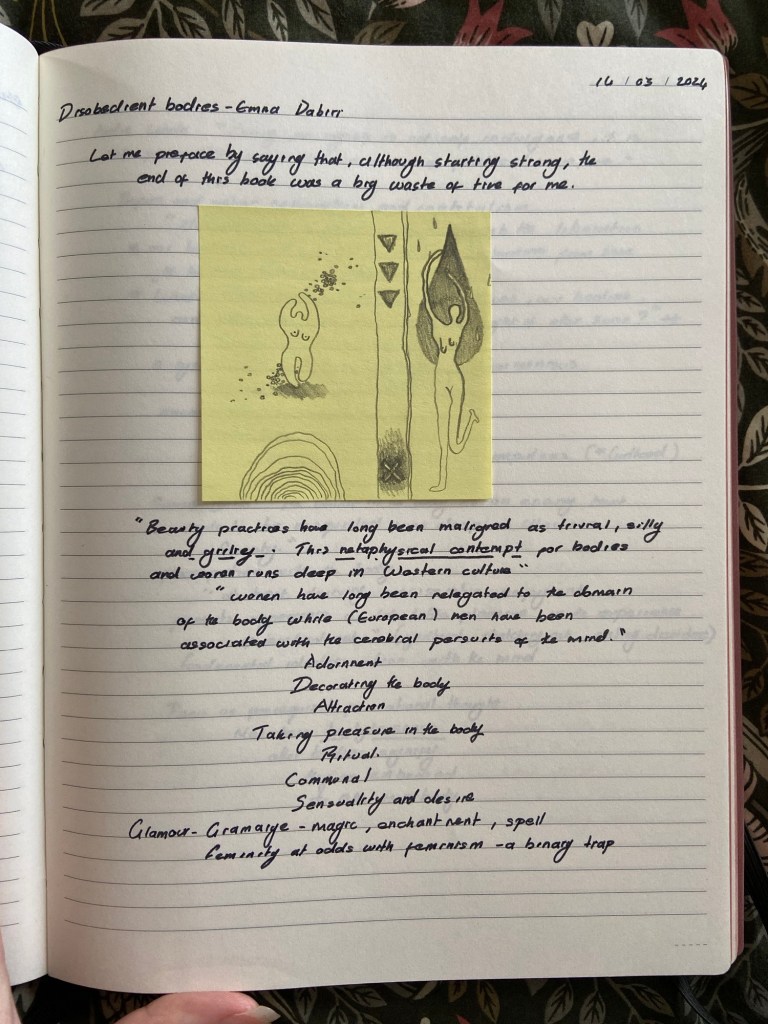 16 / 03 / 2024
Disobedient bodies - Emma Dabiri
Let me preface by saying that, although starting strong, the
end of this book was a big waste of time for me.
"Beauty practices have long been maligned as trivial, silly
and girlie . This metaphysical contempt for bodies
and women runs deep in Western culture"
"women have long been relegated to the domain
of the body while (European) men have been
associated with the cerebral persuits of the mind."
Adornment
Decorating the body
Attraction
Taking pleasure in the body
Ritual.
Communal
Sensuality and desire
Glamour - Gramarye - magic, enchantment, spell
feminity at odds with feminism - a binary trap